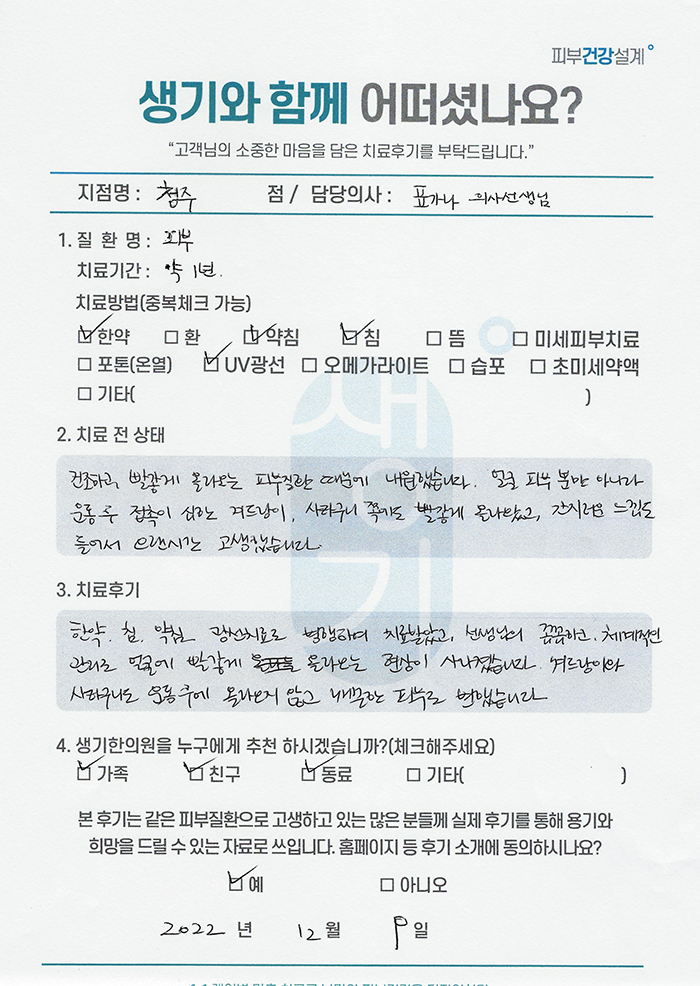 피부건강설계
생기와 함께 어떠셨나요?
“고객님의 소중한 마음을 담은 치료후기를 부탁드립니다.”
지점명 : 청주 점 / 담당의사 : 표가나 의사선생님
1. 질 환 명 : 피부
치료기간 : 약 1년.
치료방법(중복체크 가능)
☑ 한약 □ 환 ☑ 약침 ☑ 침 □ 뜸 □ 미세피부치료
□ 포톤(온열) ☑ UV광선 □ 오메가라이트 □ 습포 □ 초미세약액
□ 기타( )
2. 치료 전 상태
건조하고, 빨갛게 올라오는 피부질환 때문에 내원했습니다. 얼굴 피부 뿐만 아니라
운동 후 접촉이 심한 겨드랑이, 사타구니 쪽까지 빨갛게 올라왔고, 간지러운 느낌도
들어서 오랜시간 고생했습니다.
3. 치료후기
한약, 침, 약침, 광선치료로 병행하며 치료받았고, 선생님의 꼼꼼하고, 체계적인
관리로 얼굴에 빨갛게 올라오는 현상이 사라졌습니다. 겨드랑이와
사타구니도 운동 후에 올라오지 않고 매끈한 피부로 변했습니다
4. 생기한의원을 누구에게 추천 하시겠습니까?(체크해주세요)
☑ 가족 ☑ 친구 ☑ 동료 □ 기타( )
본 후기는 같은 피부질환으로 고생하고 있는 많은 분들께 실제 후기를 통해 용기와
희망을 드릴 수 있는 자료로 쓰입니다. 홈페이지 등 후기 소개에 동의하시나요?
☑ 예 □ 아니오
2022 년 12 월 9 일
생기